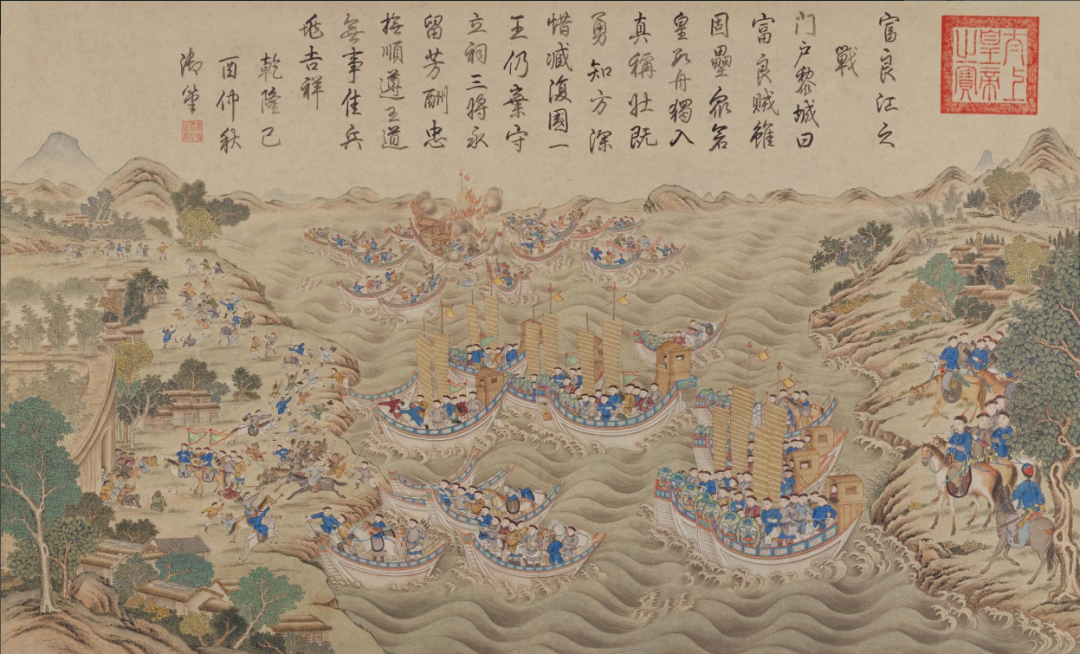 太上皇帝之寶
富良江之
戰
门户黎城曰
富良賊雖
固壘
皇舟獨入
真稱壯既
勇知方深
惜臧復國一
王仍棄守
立祠三將永
留芳酬忠
撫順遵王道
無事佳兵
兆吉祥
乾隆己
酉仲秋
御筆